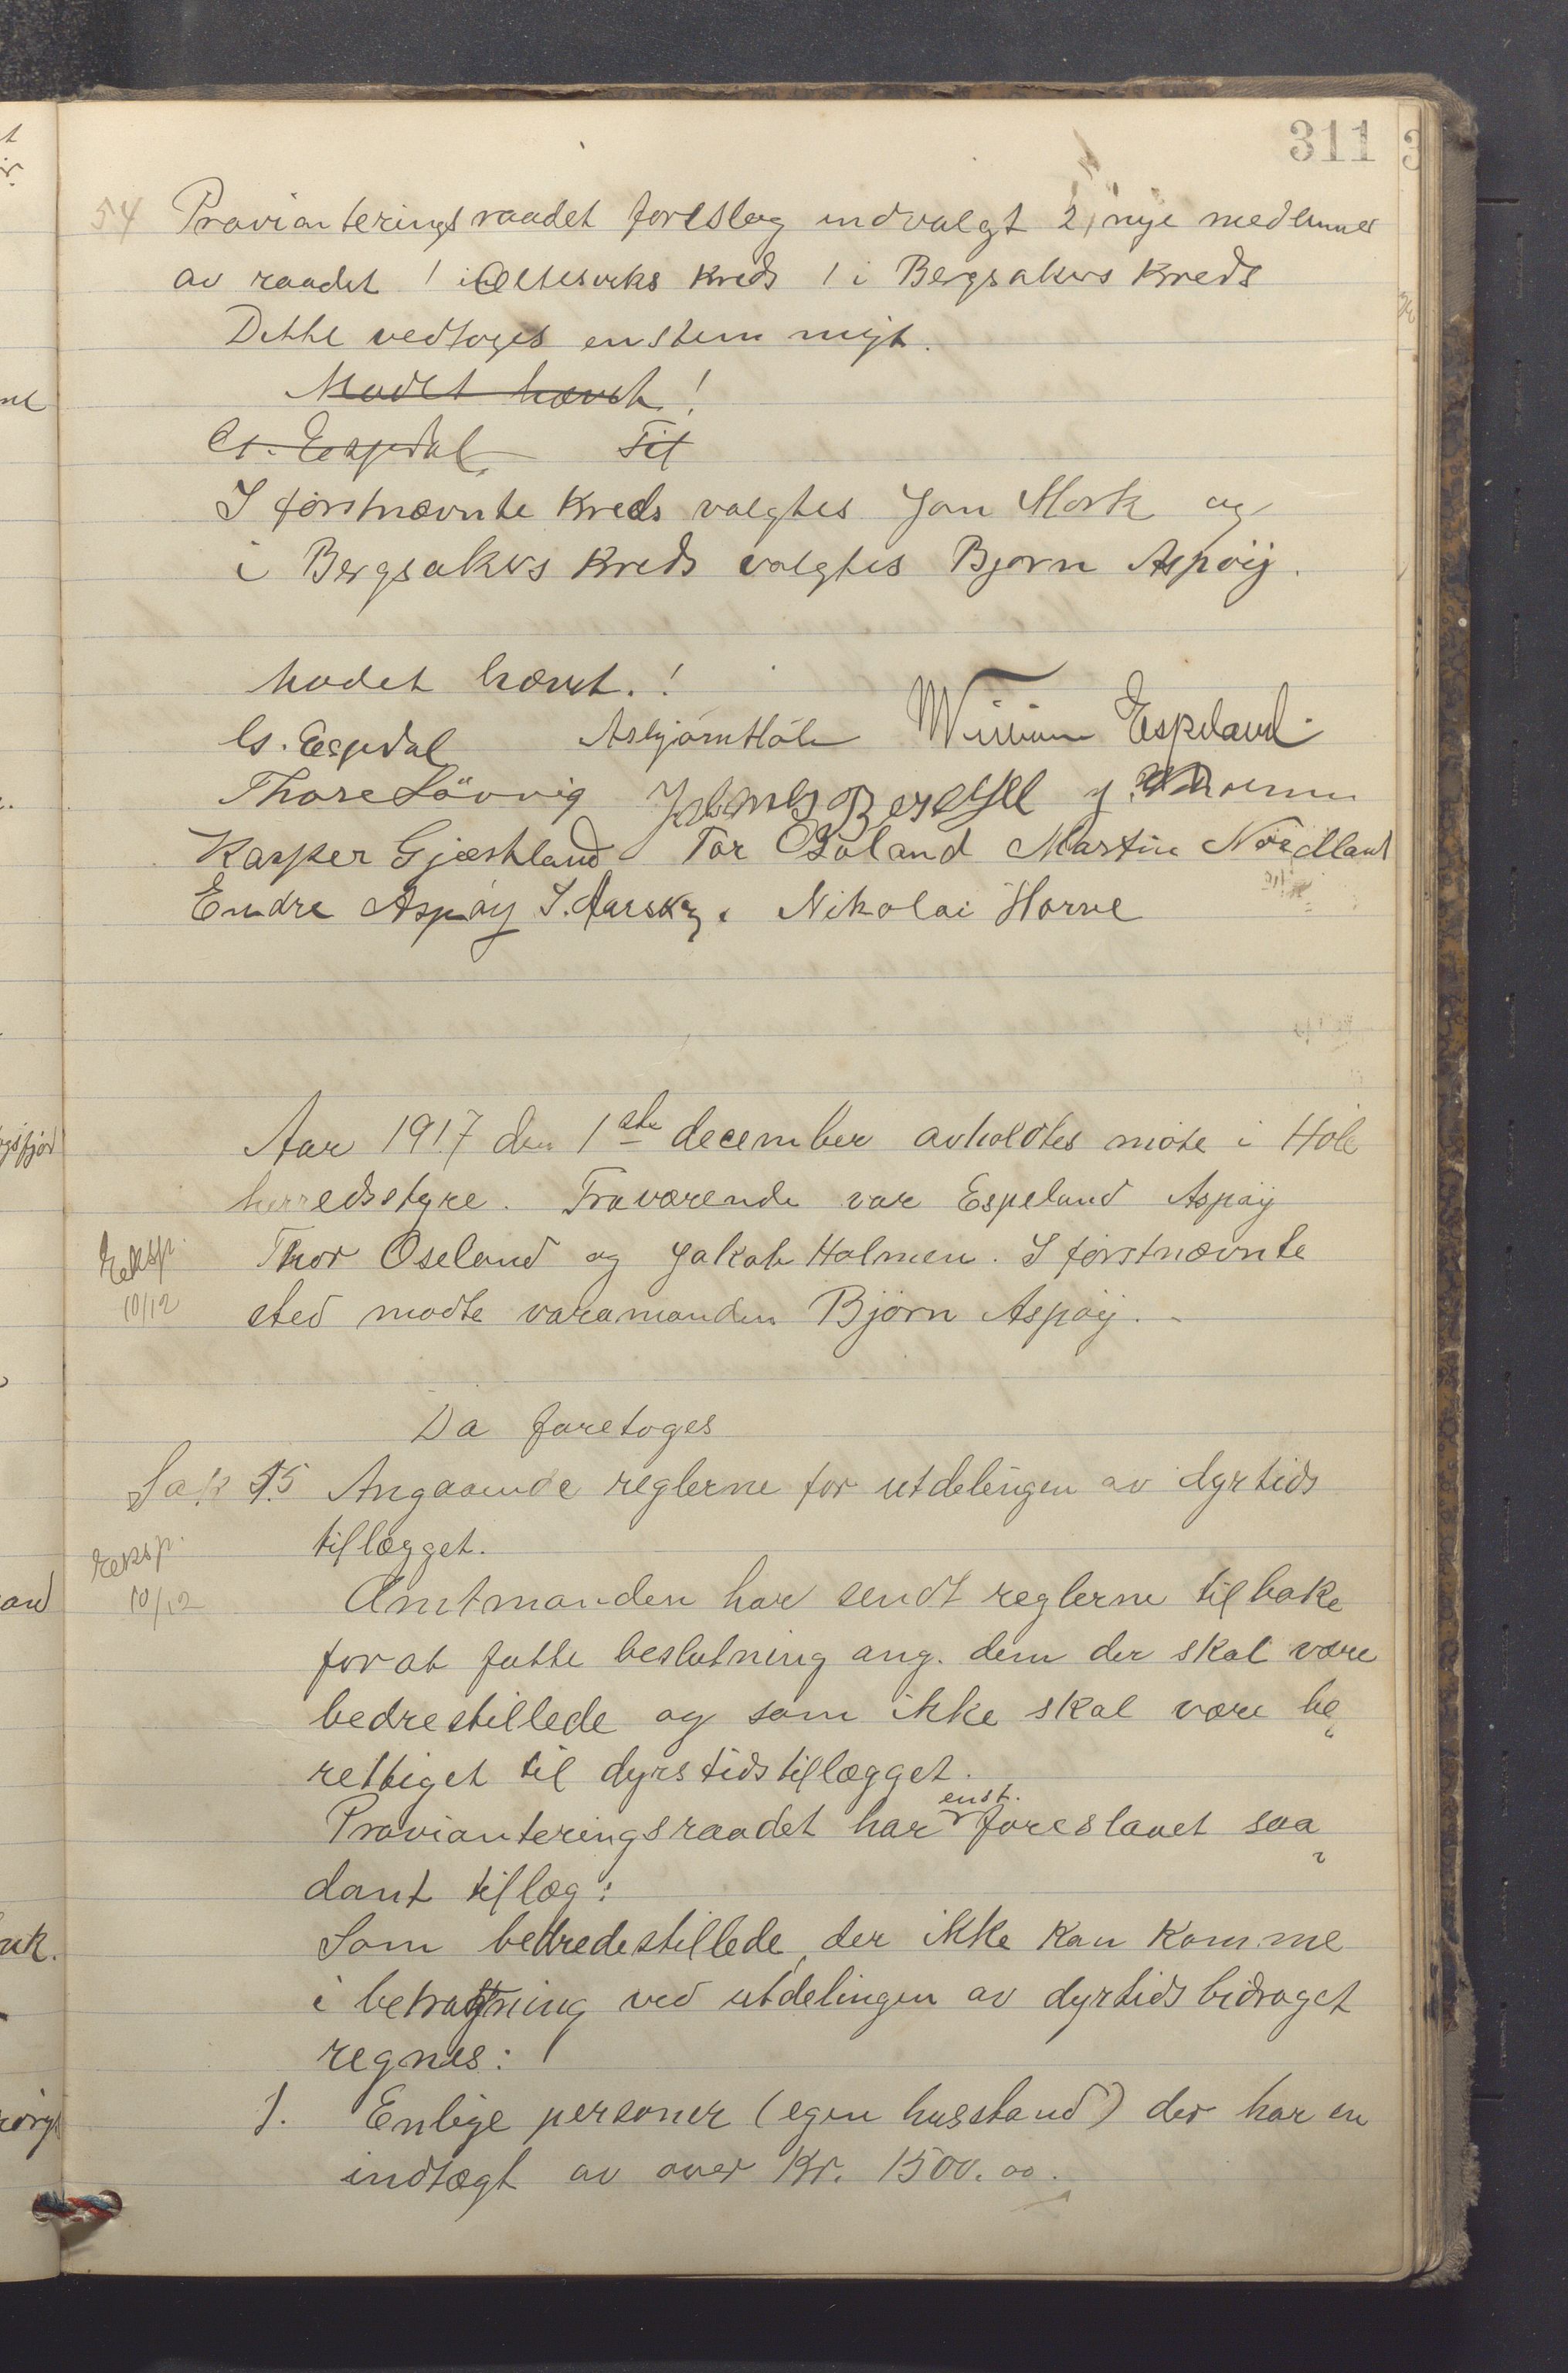 311
54 Provianteringsraadet foreslog indvalgt 2, nye medlemmer
av raadet 1 i Oltesviks kreds 1 i Bergsakers kreds
Dette vedtoges enstemmigt.
Mødet hævet!
Cs. Espedal Til
I førstnævnte kreds valgtes Jon Mork og
i Bergsakers kreds valgtes Bjørn Aspøij.
Mødet hævet.!
Cs. Espedal Asbjørn Høle William Espeland
Thore Løvvig J. Holmen
Kasper Gjæstland Tor Oseland Martin Nordland
Endre Aspøy Nikolai Horve
Aar 1917 den 1ste december avholdtes møte i Høle
herredsstyre. Fraværende var Espeland Aspøij
Eksp. Thor Oseland og Jakob Holmen. I førstnævnte
10/12 sted mødte varamanden Bjørn Aspøij.
Da foretoges
Sak 55 Angaaende reglerne for utdelingen av dyrtids
tillægget.
Eksp. 10/12 Amtmanden har sendt reglerne tilbake
for at fatte beslutning ang. dem der skal være
bedrestillede og som ikke skal være be„
rettiget til dyrstidstillægget.
enst.
Provianteringsraadet har foreslaaet saa„
dant tillæg:
Som bedredestillede, der ikke kan komme
i betragtning ved utdelingen av dyrtidsbidraget
regnes:
1. Enlige personer (egen husstand) der har en
indtægt av over Kr. 1500.00.